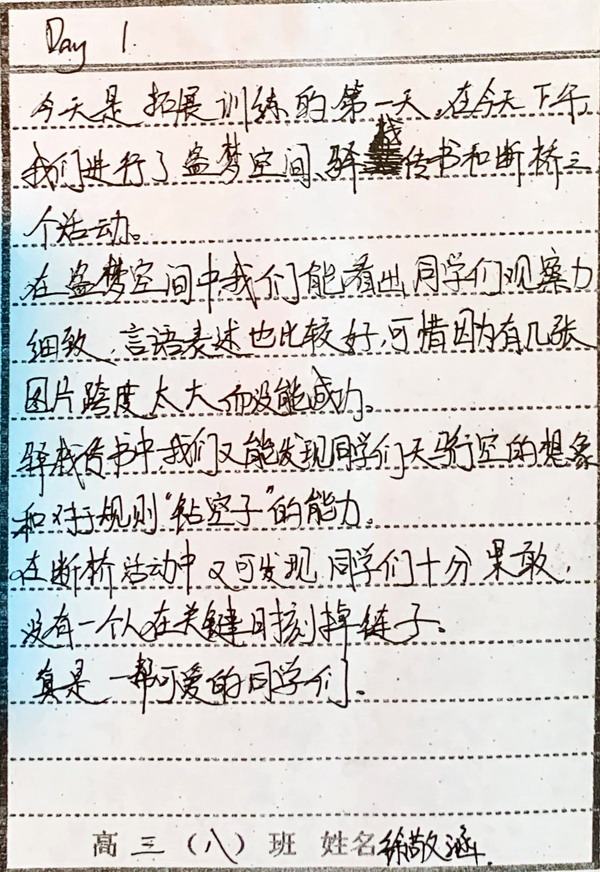 Day 1.
今天是拓展训练的第一天。在今天下午,
我们进行了盗梦空间、驿栈传书和断桥三
个活动。
在盗梦空间中,我们能看出同学们观察力
细致,言语表述也比较好,可惜因为有几张
图片跨度太大而没能成功。
驿栈传书中,我们又能发现同学们天马行空的想象
和对于规则“钻空子”的能力。
在断桥活动中又可发现同学们十分果敢,
没有一个人在关键时刻掉链子。
真是一帮可爱的同学们。
高三(八)班 姓名徐敬涵